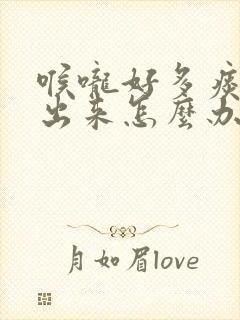 喉嚨好多痰
出来怎麼办
月如眉love